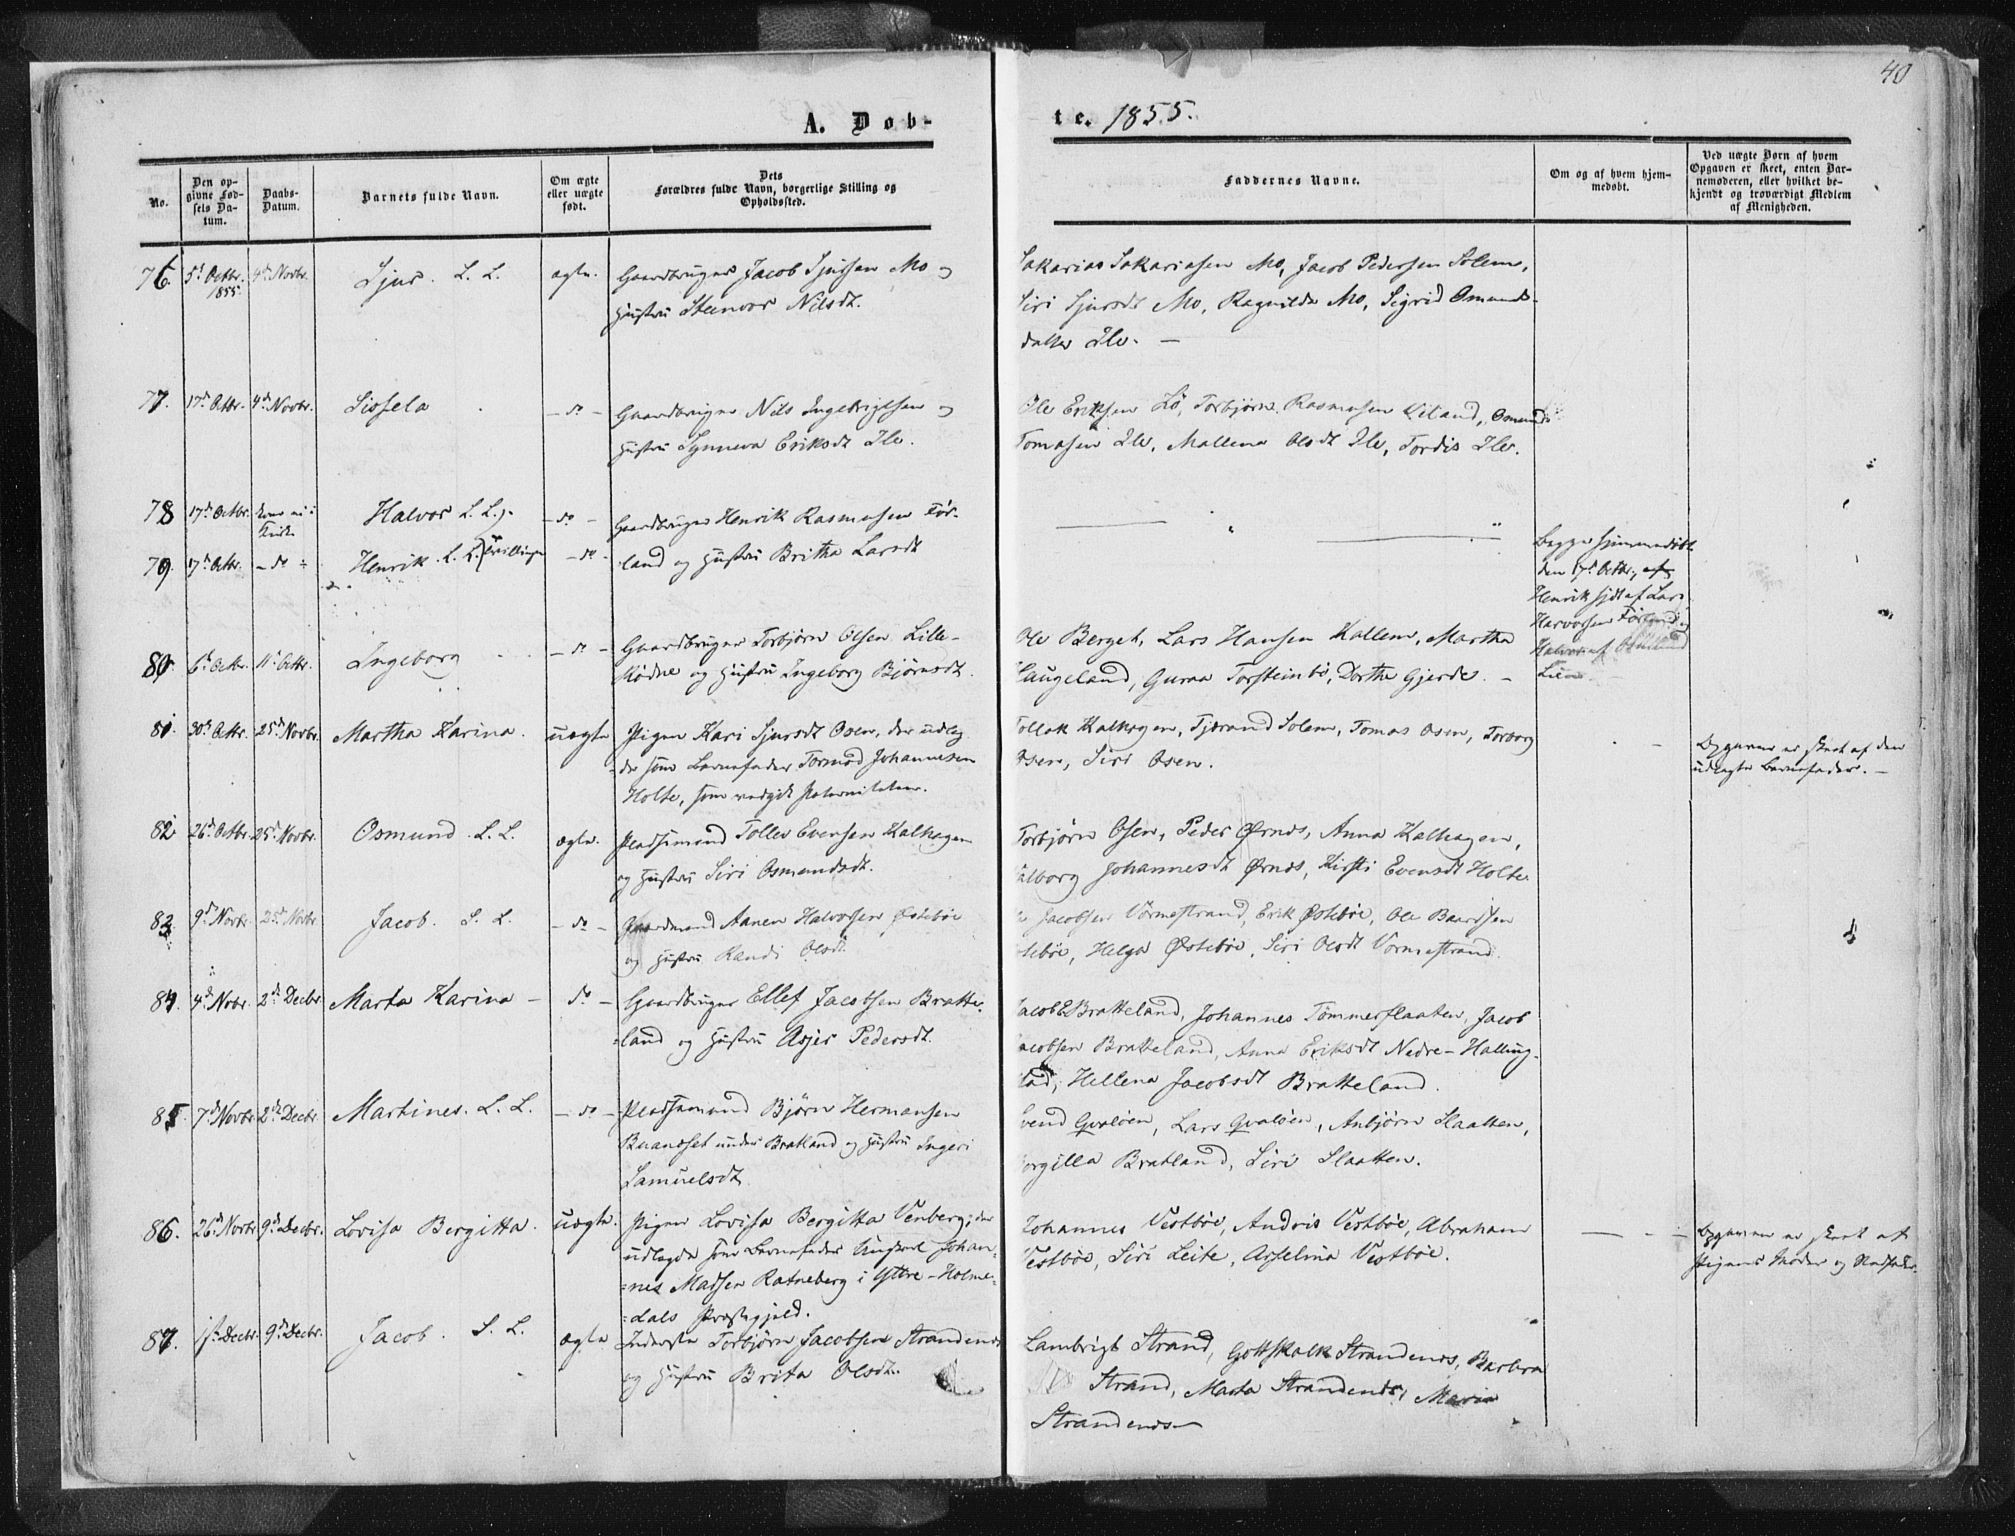 40
A. Døb-
te. 1855.
No.
Den opgivne Fødsels Datum.
Daabs-Datum.
Barnets fulde Navn.
Om ægte eller uægte født.
Dets Forældres fulde Navn, borgerlige Stilling og Opholdssted.
Faddernes Navne.
Om og af hvem hjemmedøbt.
Ved uægte Børn af hvem Opgaven er skeet, enten Barnemoderen, eller hvilket bekjendt og troværdigt Medlem af Menigheden.
76. 5t Octbr. 1855. 4d Novbr. Sjur. L. L. ægte. Gaardbruger Jacob Sjursen Mo og
Hustru Steenvor Nilsdt.
Sakarias Sakariasen Mo, Jacob Pedersen Solem,
Siri Sjursdt Mo, Ragnilda Mo, Sigrid Omunds-
datter Ile. —
77. 17d Octbr. 4d Novbr. Sissela. — do — Gaardbruger Nils Ingebrigtsen og
Hustru Synneva Eriksdt Ile.
Ole Eriksen Lö, Torbjörn Rasmusen Eiland, Omund
Tomasen Ile, Mallena Olsdt Ile, Tordis Ile.
78 17d Octbr. Halvor L. L. — do — Gaardbruger Henrik RasmusenFör-
79. 17d Octbr. — do — Henrik. L. L. Tvillinger — do — land og Hustru Britha Larsdt
Begge hjemmedøbt
den 17d Octbr, af
Henrik hjdt af Lars
Halvorsen Förland og
Halvor af Osmund
Lien
80. 6d Octbr. 11d Octbr. Ingeborg — do — Gaardbruger Torbjörn Olsen Lille-
Ködne og Hustru Ingeborg Björnsdt.
Ole Berget, Lars Hansen Kallem, Martha
Haugeland, Guraa Torsteinbö, Dorthe Gjerde. —
81. 30d Octbr. 25d Novbr. Martha Karina. uægte Pigen Kari Sjursdt Osen, der udlag-
de som Barnefader Tormod Johannesen
Holte, som vedgik Paterniteten.
Tollak Kalhagen, Tjerand Solem, Tomas Osen, Torborg
Osen, Siri Osen.
Opgaven er skeet af den
udlagte Barnefader. —
82. 26d Octbr. 25d Novbr. Osmund. L. L. ægte. Pladsmand Tollev Evensen Kalhagen
og Hustru Siri Osmundsdt.
Torbjörn Osen, Peder Ørnes, Anna Kalhagen,
Valborg Johannesdt Ørnes, Kirsti Evensdt Holte
83. 9d Novbr. 25d Novbr. Jacob. L. L. — do — Gaardmand Aanen Halvorsen Østeböe
og Hustru Randi Olsdt.
Jacobsen Vormestrand, Erik Østeböe, Ole Baardsen
Østeböe, Helga Østeböe, Siri Olsdt Vormestrand.
84. 4d Nobr. 2d Decbr Marta Karina — do — Gaardbruger Ellef Jacobsen Bratte-
land og Hustru Asjer Pedersdt.
Jacob E Bratteland, Johannes Tömmerflaaten, Jacob
Jacobsen Bratteland, Anna Eriksdt Nedre-Halling-
stad, Hellena Jacobsdt Bratteland.
85. 7d Novbr. 2d Decbr. Martines. L. L. — do — Pladsmand Björn Hermansen
Buandset under Bratland og Hustru Ingeri
Samuelsdt
Svend Qvalöen, Lars Qvalöen, Anbjörn Slaatten,
Borgilla Bratland, Siri Slaatten.
86. 26d Novbr. 9d Decbr. Lovisa Bergitta. uægte. Pigen Lovisa Bergitta Venberg; der
udlagde som Barnefader Ungkarl Johan-
nes Madsen Ratneberg i Yttre-Holme-
dals Præstegjeld.
Johannes Vestböe, Andreis Vestböe, Abraham
Vestböe, Siri Leite, Asselina Vestböe.
Opgaven er skeet af
Pigens Moder og Stedfader.
87. 1st Decbr. 9d Decbr. Jacob. L. L. ægte Inderste Torbjörn Jacobsen Strandenes
og Hustru Brita Olsdt.
Lambrigt Strand, Gottskalk Strandenes, Barbra
Strand, Marta Strandenes, Maria
Strandenes